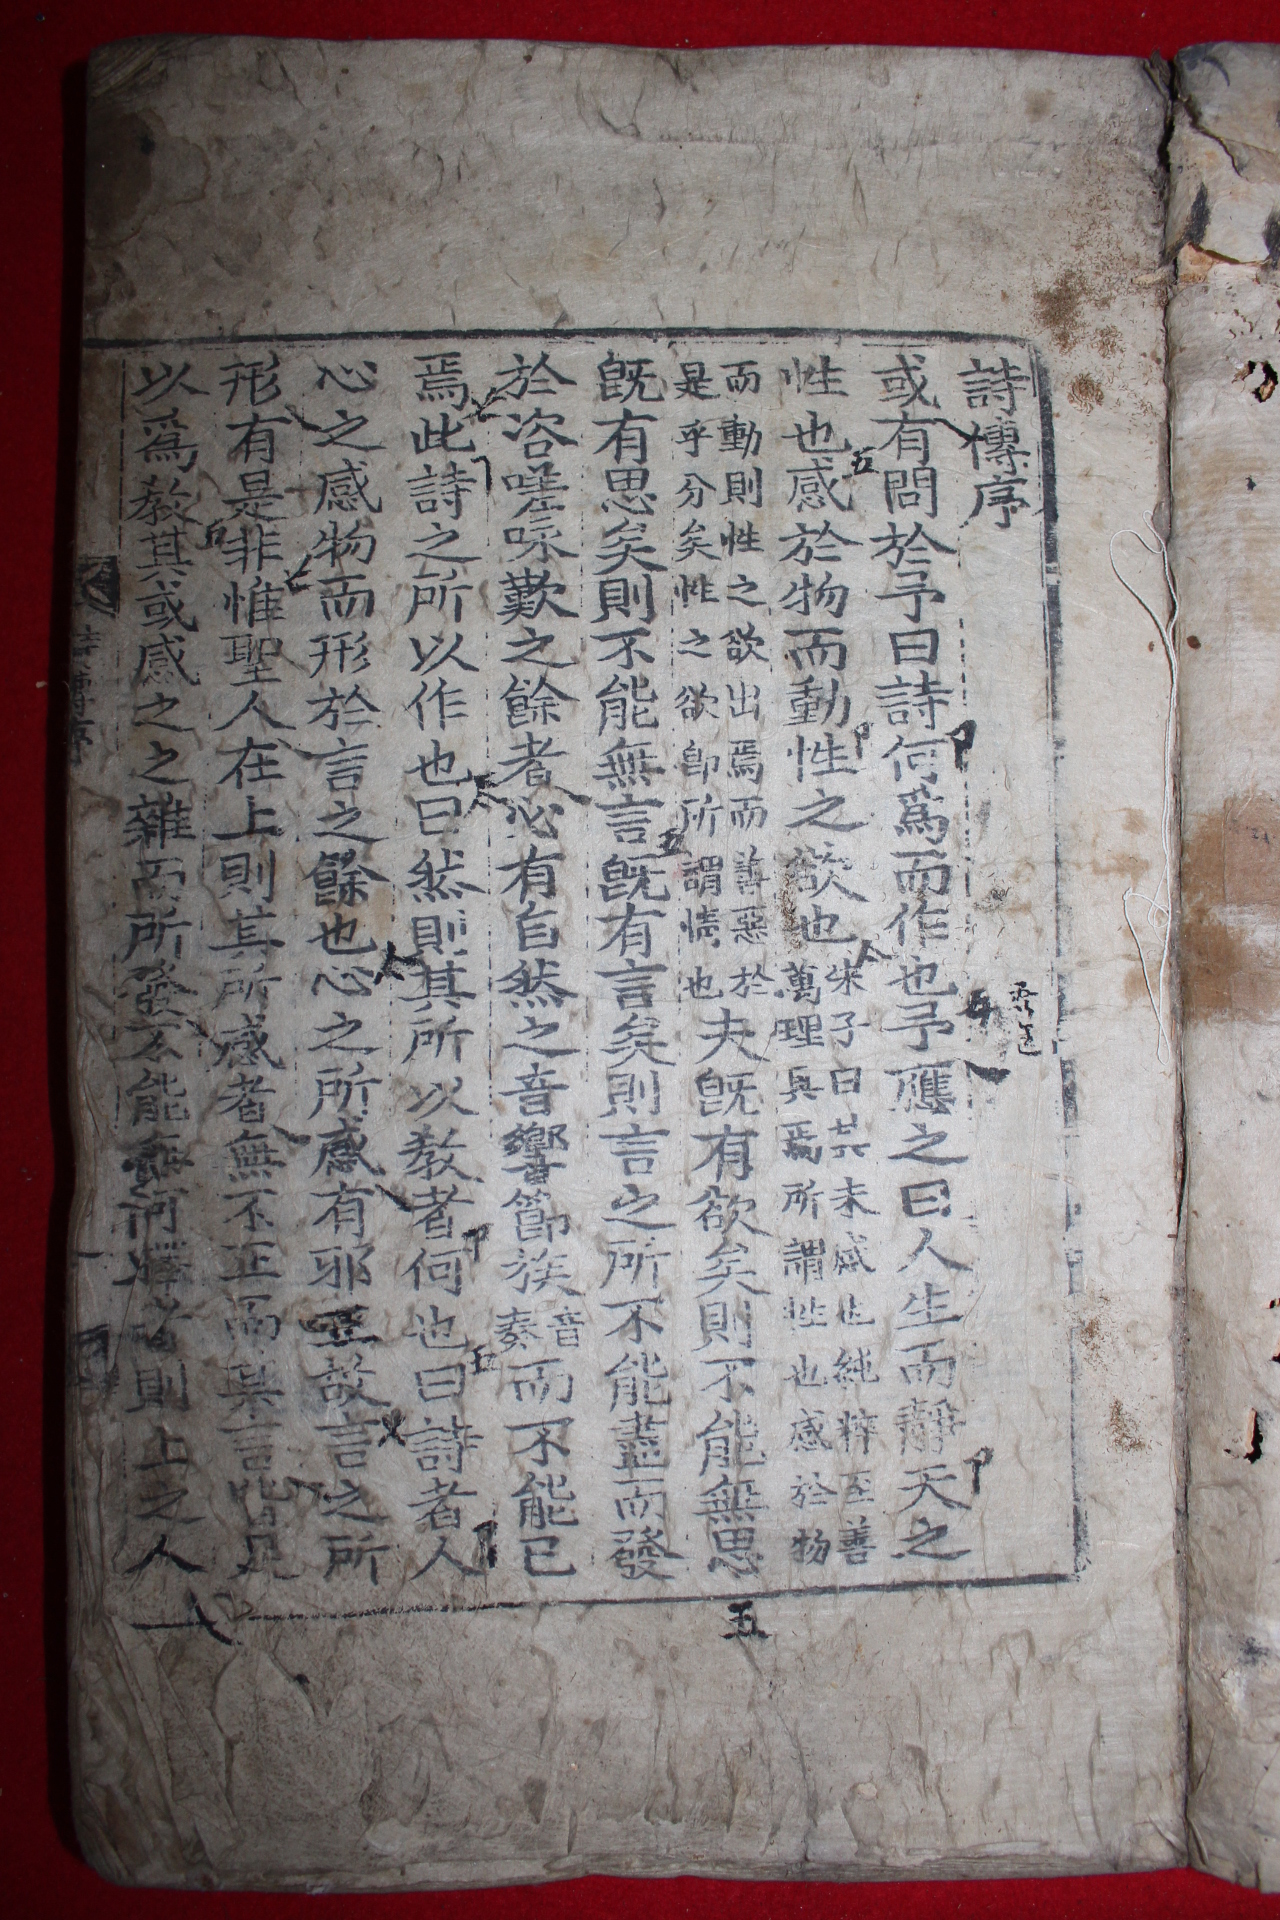 詩傳序
或有問於予曰詩何爲而作也予應之曰人生而靜天之
性也感於物而動性之欲也朱子曰其未感也純粹至善
萬理具焉所謂性也感於物
而動則性之欲出焉而善惡於
是乎分矣性之欲卽所謂情也夫旣有欲矣則不能無思
旣有思矣則不能無言旣有言矣則言之所不能盡而發
於咨嗟咏歎之餘者必有自然之音響節族音奏而不能已
焉此詩之所以作也曰然則其所以敎者何也曰詩者人
心之感物而形於言之餘也心之所感有邪正故言之所
形有是非惟聖人在上則其所感者無不正而其言皆足
以爲敎其或感之之雜而所發不能無可擇者則上之人
詩傳序
五